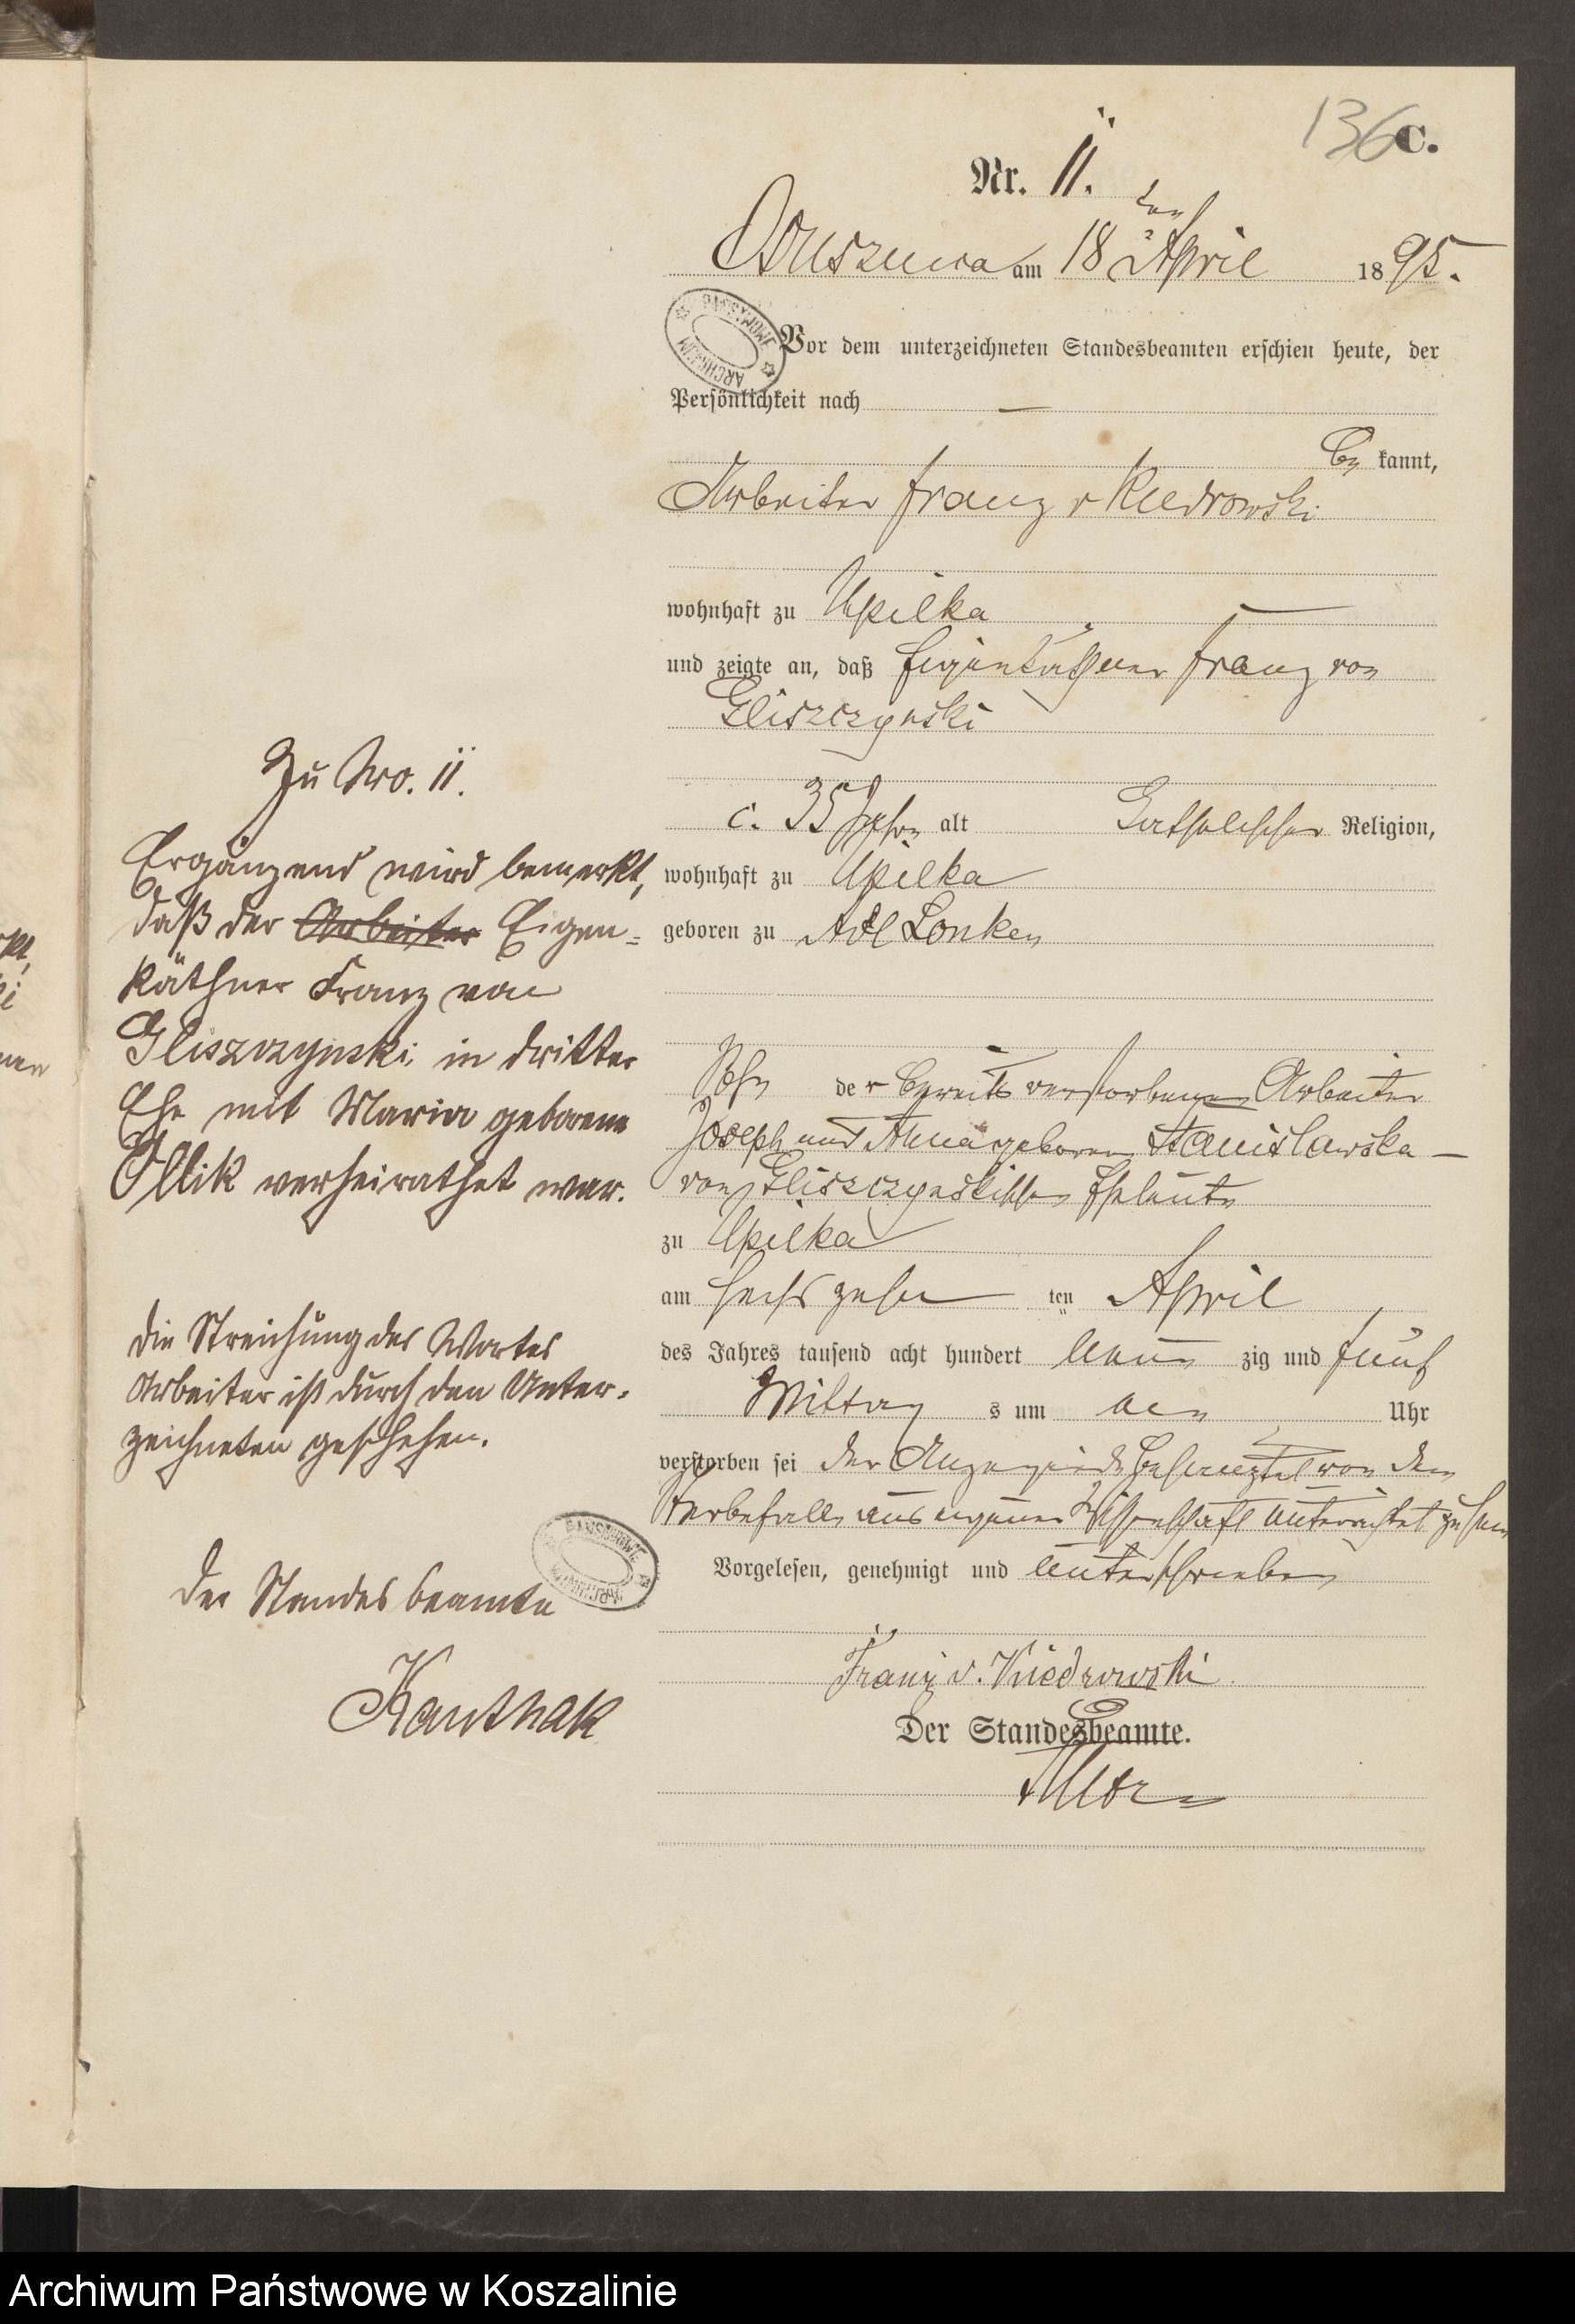 136 C.
Nr. 11.
am 18ten April 1895.
PAŃSTWOWE ARCHIWUM
Vor dem unterzeichneten Standesbeamten erschien heute, der
Persönlichkeit nach —
be kannt,
Arbeiter Franz v Kiedrowski
wohnhaft zu Upilka
und zeigte an, daß Eigenkäthner Franz von
Gliszczynski
c. 35 Jahre alt katholischer Religion,
wohnhaft zu Upilka
geboren zu Adl Lonken
Sohn der bereits verstorbenen Arbeiter
Joseph und geborene Stanislawska —
von Gliszczynskischen Eheleute
zu Upilka
am sechszehn ten April
des Jahres tausend acht hundert neun zig und fünf
Mittag s um Uhr
verstorben sei der Anzeigende von dem
Sterbefalle aus eigener Wissenschaft unterrichtet zu sein
Vorgelesen, genehmigt und unterschrieben
Franz v. Kiedrowski
Der Standesbeamte.
Zu Nro. 11.
Ergänzend wird bemerkt,
daß der Arbeiter Eigen-
käthner Franz von
Gliszczynski in dritter
Ehe mit Maria geborene
Ollik verheirathet war.
Die Streichung des Wortes
Arbeiter ist durch den Unter-
zeichneten geschehen.
Der Standesbeamte
Kanthak
Archiwum Państwowe w Koszalinie